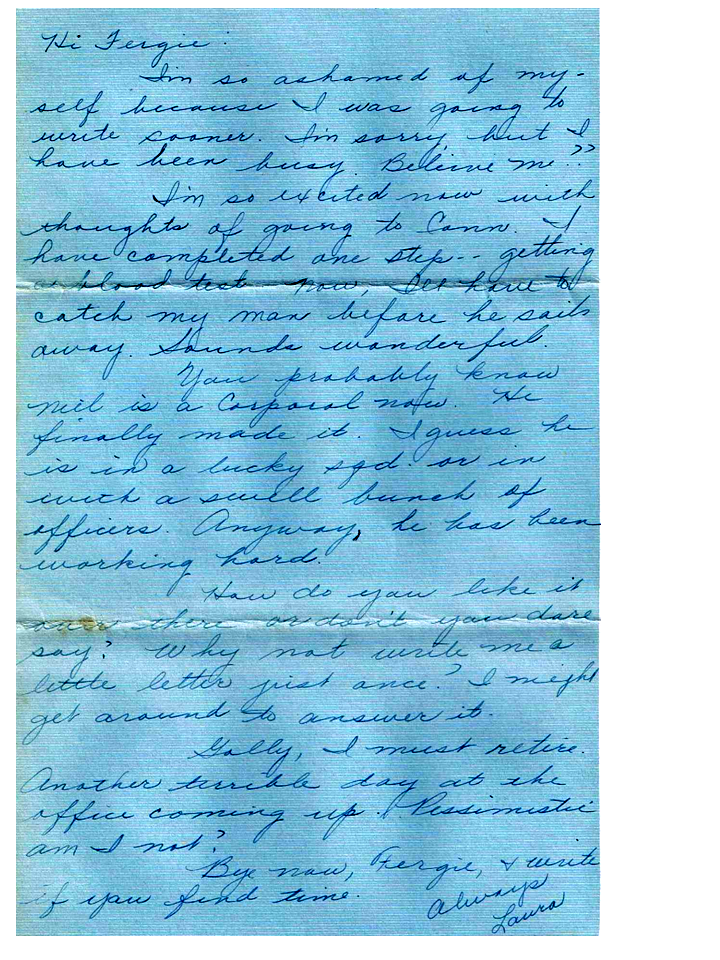 Hi Fergie:
I'm so ashamed of my-
self because I was going to
write sooner. I'm sorry, but I
have been busy. Believe me??
I'm so excited now with
thoughts of going to Conn. I
have completed one step-- getting
a blood test now, I'll have to
catch my man before he sails
away. Sounds wonderful.
You probably know
Neil is a Corporal now. He
finally made it. I guess he
is in a lucky sqd. or in
with a swell bunch of
officers. Anyway, he has been
working hard.
How do you like it
over there or don't you dare
say? Why not write me a
little letter just once? I might
get around to answer it.
Golly, I must retire.
Another terrible day at the
office coming up. Pessimistic
am I not?
Bye now, Fergie, & write
if you find time.
Always
Laura